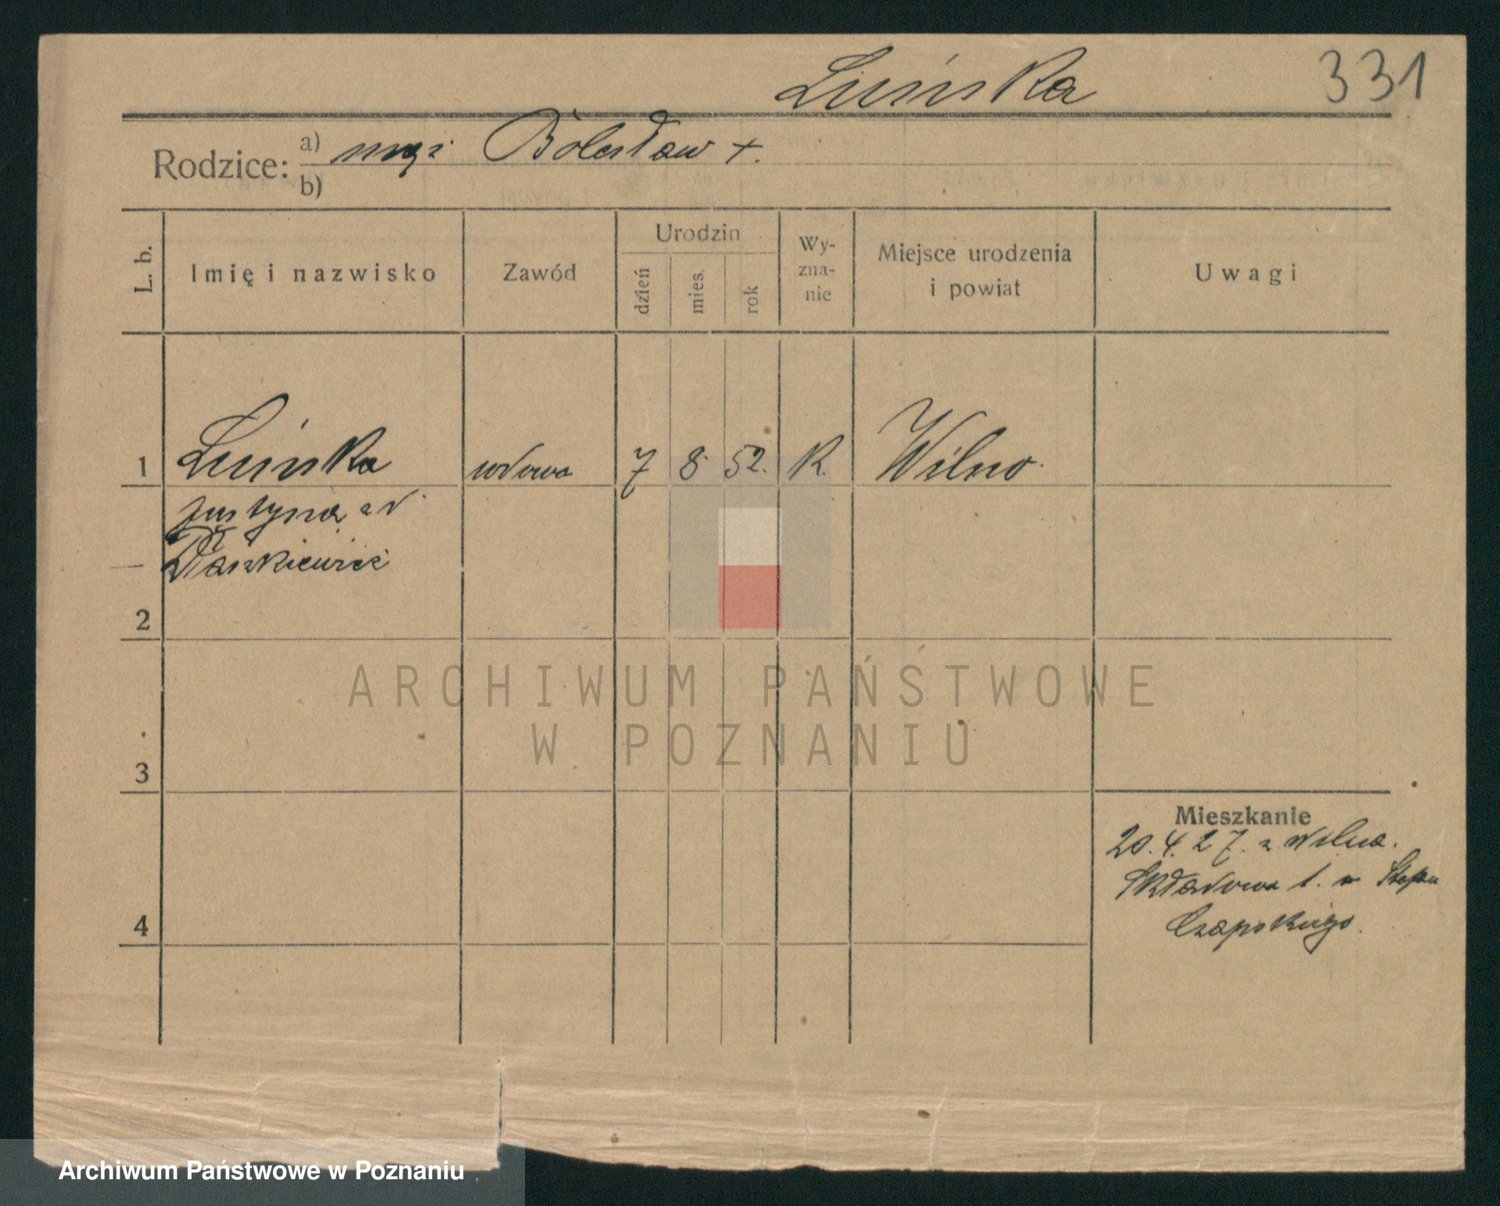 Lisińska
331
Rodzice: a) mąż Bolesław +.
b)
L. b.
Imię i nazwisko
Zawód
Urodzin
dzień
mies.
rok
Wy-
zna-
nie
Miejsce urodzenia
i powiat
Uwagi
1 wdowa 7 8 52. R. Wilno.
Justyna z d.
2
ARCHIWUM PAŃSTWOWE
W POZNANIU
3
Mieszkanie
20.4.27. z Wilna.
Składowa 1. Stefan
Czapskiego.
4
Archiwum Państwowe w Poznaniu